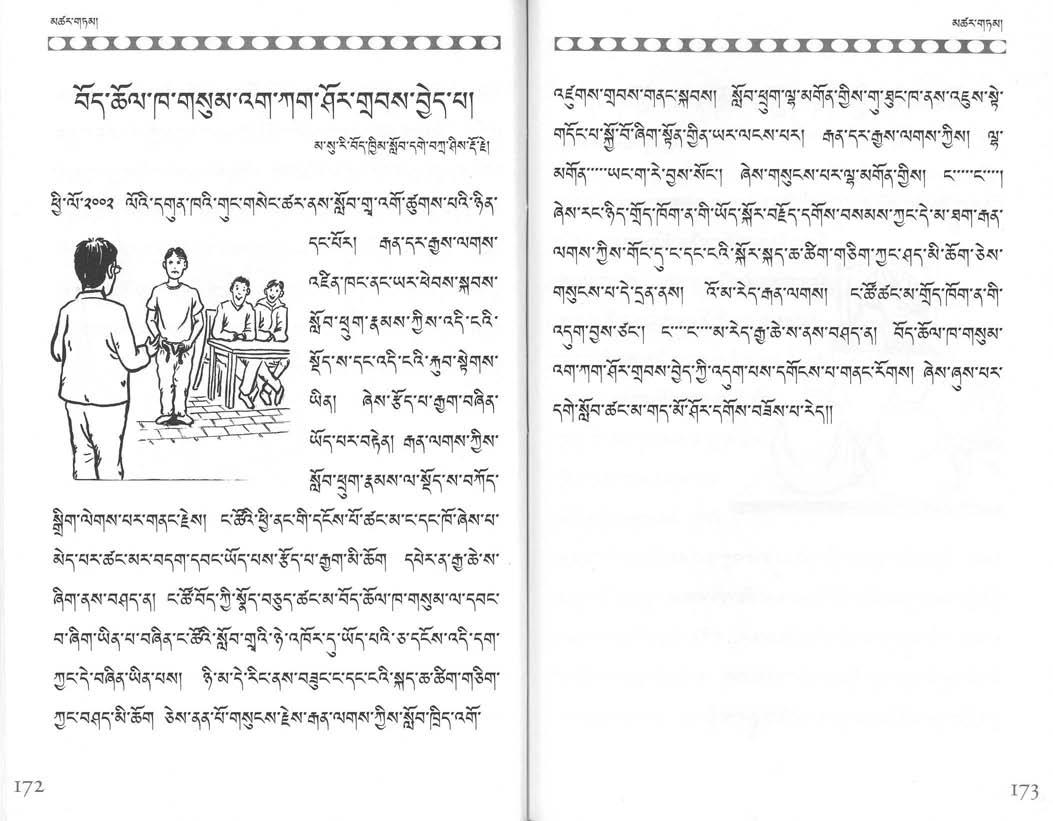 མཚར་གཏམ།
བོད་ཆོལ་ཁ་གསུམ་འག་ཀག་ཤོར་གྲབས་བྱེད་པ།
མ་སུ་རི་བོད་ཁྱིམ་སློབ་དགེ་བཀྲ་ཤིས་རྡོ་རྗེ།
ཕྱི་ལོ་༢༠༠༢ ལོའི་དགུན་ཁའི་གུང་གསེང་ཚར་ནས་སློབ་གྲྭ་འགོ་ཚུགས་པའི་ཉིན་
དང་པོར། རྒན་དར་རྒྱས་ལགས་
འཛིན་ཁང་ནང་ཡར་ཕེབས་སྐབས་
སློབ་ཕྲུག་རྣམས་ཀྱིས་འདི་ངའི་
སྡོད་ས་དང་འདི་ངའི་རྐུབ་སྟེགས་
ཡིན། ཞེས་རྩོད་པ་རྒྱག་བཞིན་
ཡོད་པར་བརྟེན། རྒན་ལགས་ཀྱིས་
སློབ་ཕྲུག་རྣམས་ལ་སྡོད་ས་བཀོད་
སྒྲིག་ལེགས་པར་གནང་རྗེས། ང་ཚོའི་ཕྱི་ནང་གི་དངོས་པོ་ཚང་མ་ང་དང་ཁོ་ཞེས་པ་
མེད་པར་ཚང་མར་བདག་དབང་ཡོད་པས་རྩོད་པ་རྒྱག་མི་ཆོག དཔེར་ན་རྒྱ་ཆེ་ས་
ཞིག་ནས་བཤད་ན། ང་ཚོ་བོད་ཀྱི་སྣོད་བཅུད་ཚང་མ་བོད་ཆོལ་ཁ་གསུམ་ལ་དབང་
བ་ཞིག་ཡིན་པ་བཞིན་ང་ཚོའི་སློབ་གྲྭའི་ཉེ་འཁོར་དུ་ཡོད་པའི་ཅ་དངོས་འདི་དག་
ཀྱང་དེ་བཞིན་ཡིན་པས། ཉི་མ་དེ་རིང་ནས་བཟུང་ང་དང་ངའི་སྐད་ཆ་ཚིག་གཅིག་
ཀྱང་བཤད་མི་ཆོག ཅེས་ནན་པོ་གསུངས་རྗེས་རྒན་ལགས་ཀྱིས་སློབ་ཁྲིད་འགོ་
172
མཚར་གཏམ།
འཛུགས་གྲབས་གནང་སྐབས། སློབ་ཕྲུག་ལྷ་མགོན་གྱིས་གུ་ཐུང་ཁ་ནས་འཇུས་སྟེ་
གདོང་པ་སྐྱོ་བོ་ཞིག་སྟོན་གྱིན་ཡར་ལངས་པར། རྒན་དར་རྒྱས་ལགས་ཀྱིས། ལྷ་
མགོན་····ཡང་ག་རེ་བྱས་སོང་། ཞེས་གསུངས་པར་ལྷ་མགོན་གྱིས། ང་····ང་····།
ཞེས་རང་ཉིད་གྲོད་ཁོག་ན་གི་ཡོད་སྐོར་བརྗོད་དགོས་བསམས་ཀྱང་དེ་མ་ཐག་རྒན་
ལགས་ཀྱིས་གོང་དུ་ང་དང་ངའི་སྐོར་སྐད་ཆ་ཚིག་གཅིག་ཀྱང་ཤད་མི་ཆོག་ཅེས་
གསུངས་པ་དེ་དྲན་ནས། འོ་མ་རེད་རྒན་ལགས། ང་ཚོ་ཚང་མ་གྲོད་ཁོག་ན་གི་
འདུག་བྱས་ཙང་། ང་····ང་····མ་རེད་རྒྱ་ཆེ་ས་ནས་བཤད་ན། བོད་ཆོལ་ཁ་གསུམ་
འག་ཀག་ཤོར་གྲབས་བྱེད་ཀྱི་འདུག་པས་དགོངས་པ་གནང་རོགས། ཞེས་ཞུས་པར་
དགེ་སློབ་ཚང་མ་གད་མོ་ཤོར་དགོས་བཟོས་པ་རེད།།
173